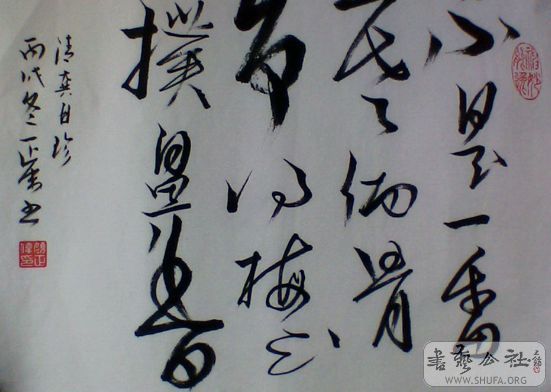 不是一番
寒彻骨
得梅花
撲鼻香
清龚自珍
丙戌冬书
書藝公社
WWW.SHUFA.ORG